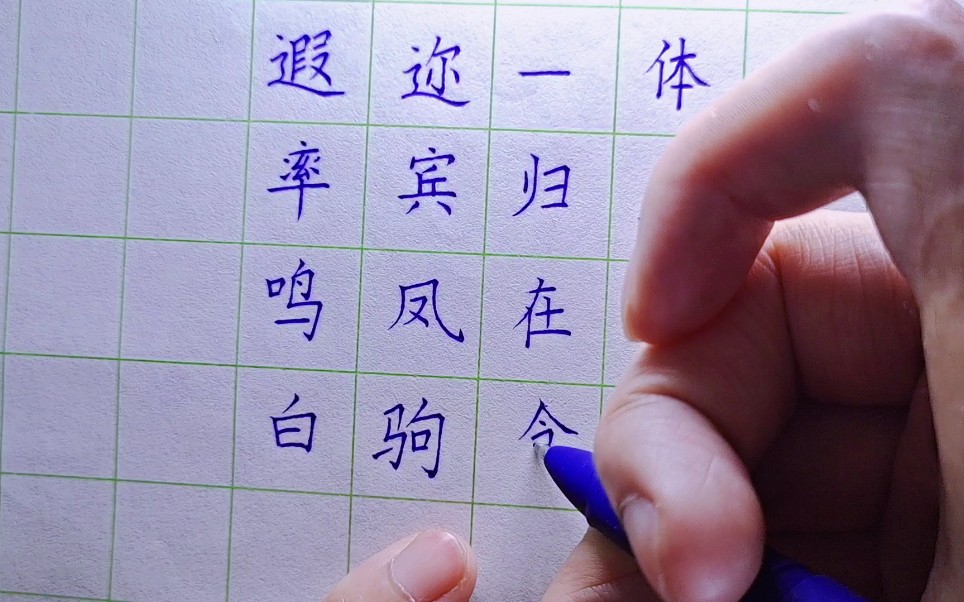 遐迩一体
率宾归
鸣凤在
白驹